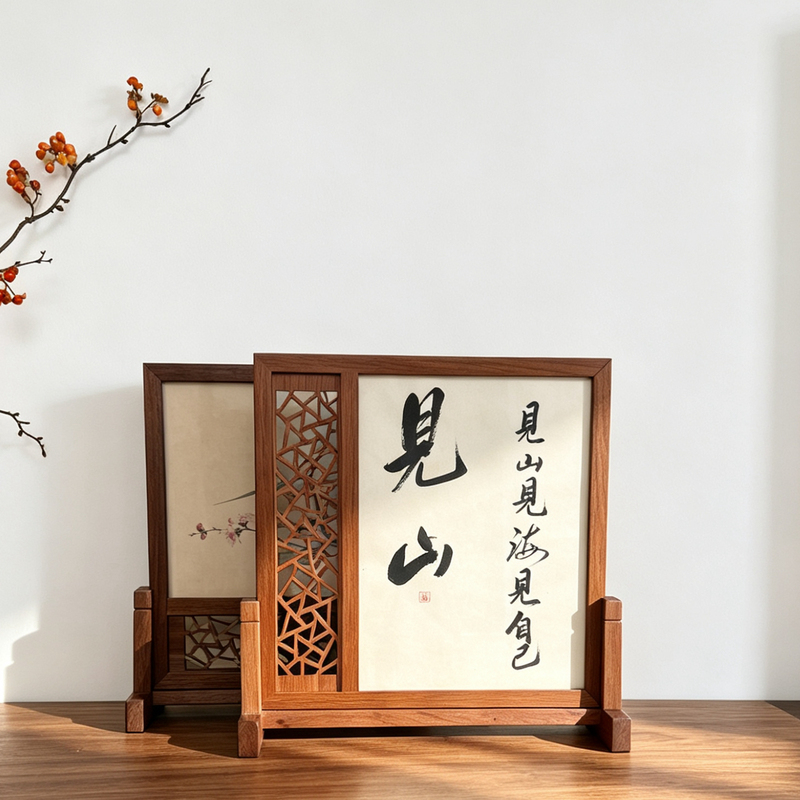 見山見海見自己
見山